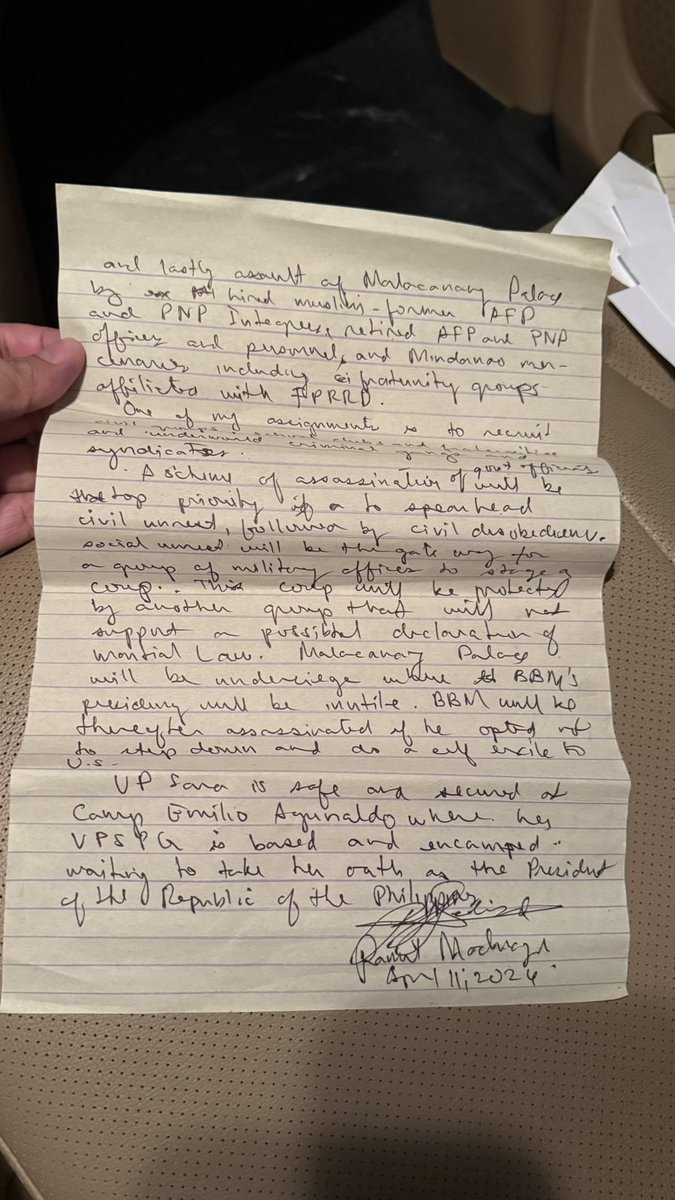 and lastly assault of Malacanang Palace
by hired muslims - former AFP
and PNP Integrees, retired AFP and PNP
officers and personnel, and Mindanao mer-
cenaries including fraternity groups
affiliated with FPRRD.
One of my assignments is to recruit
civil groups
and underworld criminal gangs
syndicates.
A scheme of assassination of govt officials will be
top priority to spearhead
civil unrest, followed by civil disobedience.
social unrest will be the gate way for
a group of military officers to stage a
coup.. This coup will be protected
by another group that will not
support a possible declaration of
Martial Law. Malacanang Palace
will be undersiege where BBM's
presiding will be inutile. BBM will be
thereafter assassinated if he opted not
to step down and do a self exile to
U.S.
VP Sara is safe and secured at
Camp Emilio Aguinaldo where her
VPSPG is based and encamped..
waiting to take her oath as the President
of the Republic of the Philippines
April 11, 2024